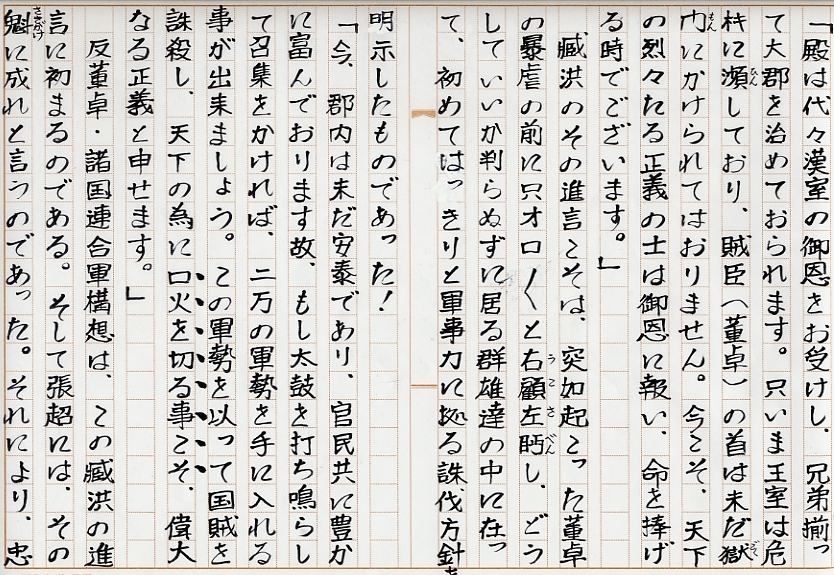 「殿は代々漢室の御恩をお受けし、兄弟揃っ
て大郡を治めておられます。只いま王室は危
殆に瀕しており、賊臣(董卓)の首は未だ獄
門にかけられてはおりません。今こそ、天下
の烈々たる正義の士は御恩に報い、命を捧げ
る時でございます。」
臧洪のその進言こそは、突如起こった董卓
の暴虐の前に只オロ〱と右顧左眄し、どう
していいか判らぬずに居る群雄達の中に在っ
て、初めてはっきりと軍事力に拠る誅伐方針を
明示したものであった!
「今、郡内は未だ安泰であり、官民共に豊か
に富んでおります故、もし太鼓を打ち鳴らし
て召集をかければ、二万の軍勢を手に入れる
事が出来ましょう。この軍勢を以って国賊を
誅殺し、天下の為に口火を切る事こそ、偉大
なる正義と申せます。」
反董卓・諸国連合軍構想は、この臧洪の進
言に初まるのである。そして張超には、その
魁に成れと言うのであった。それにより、忠